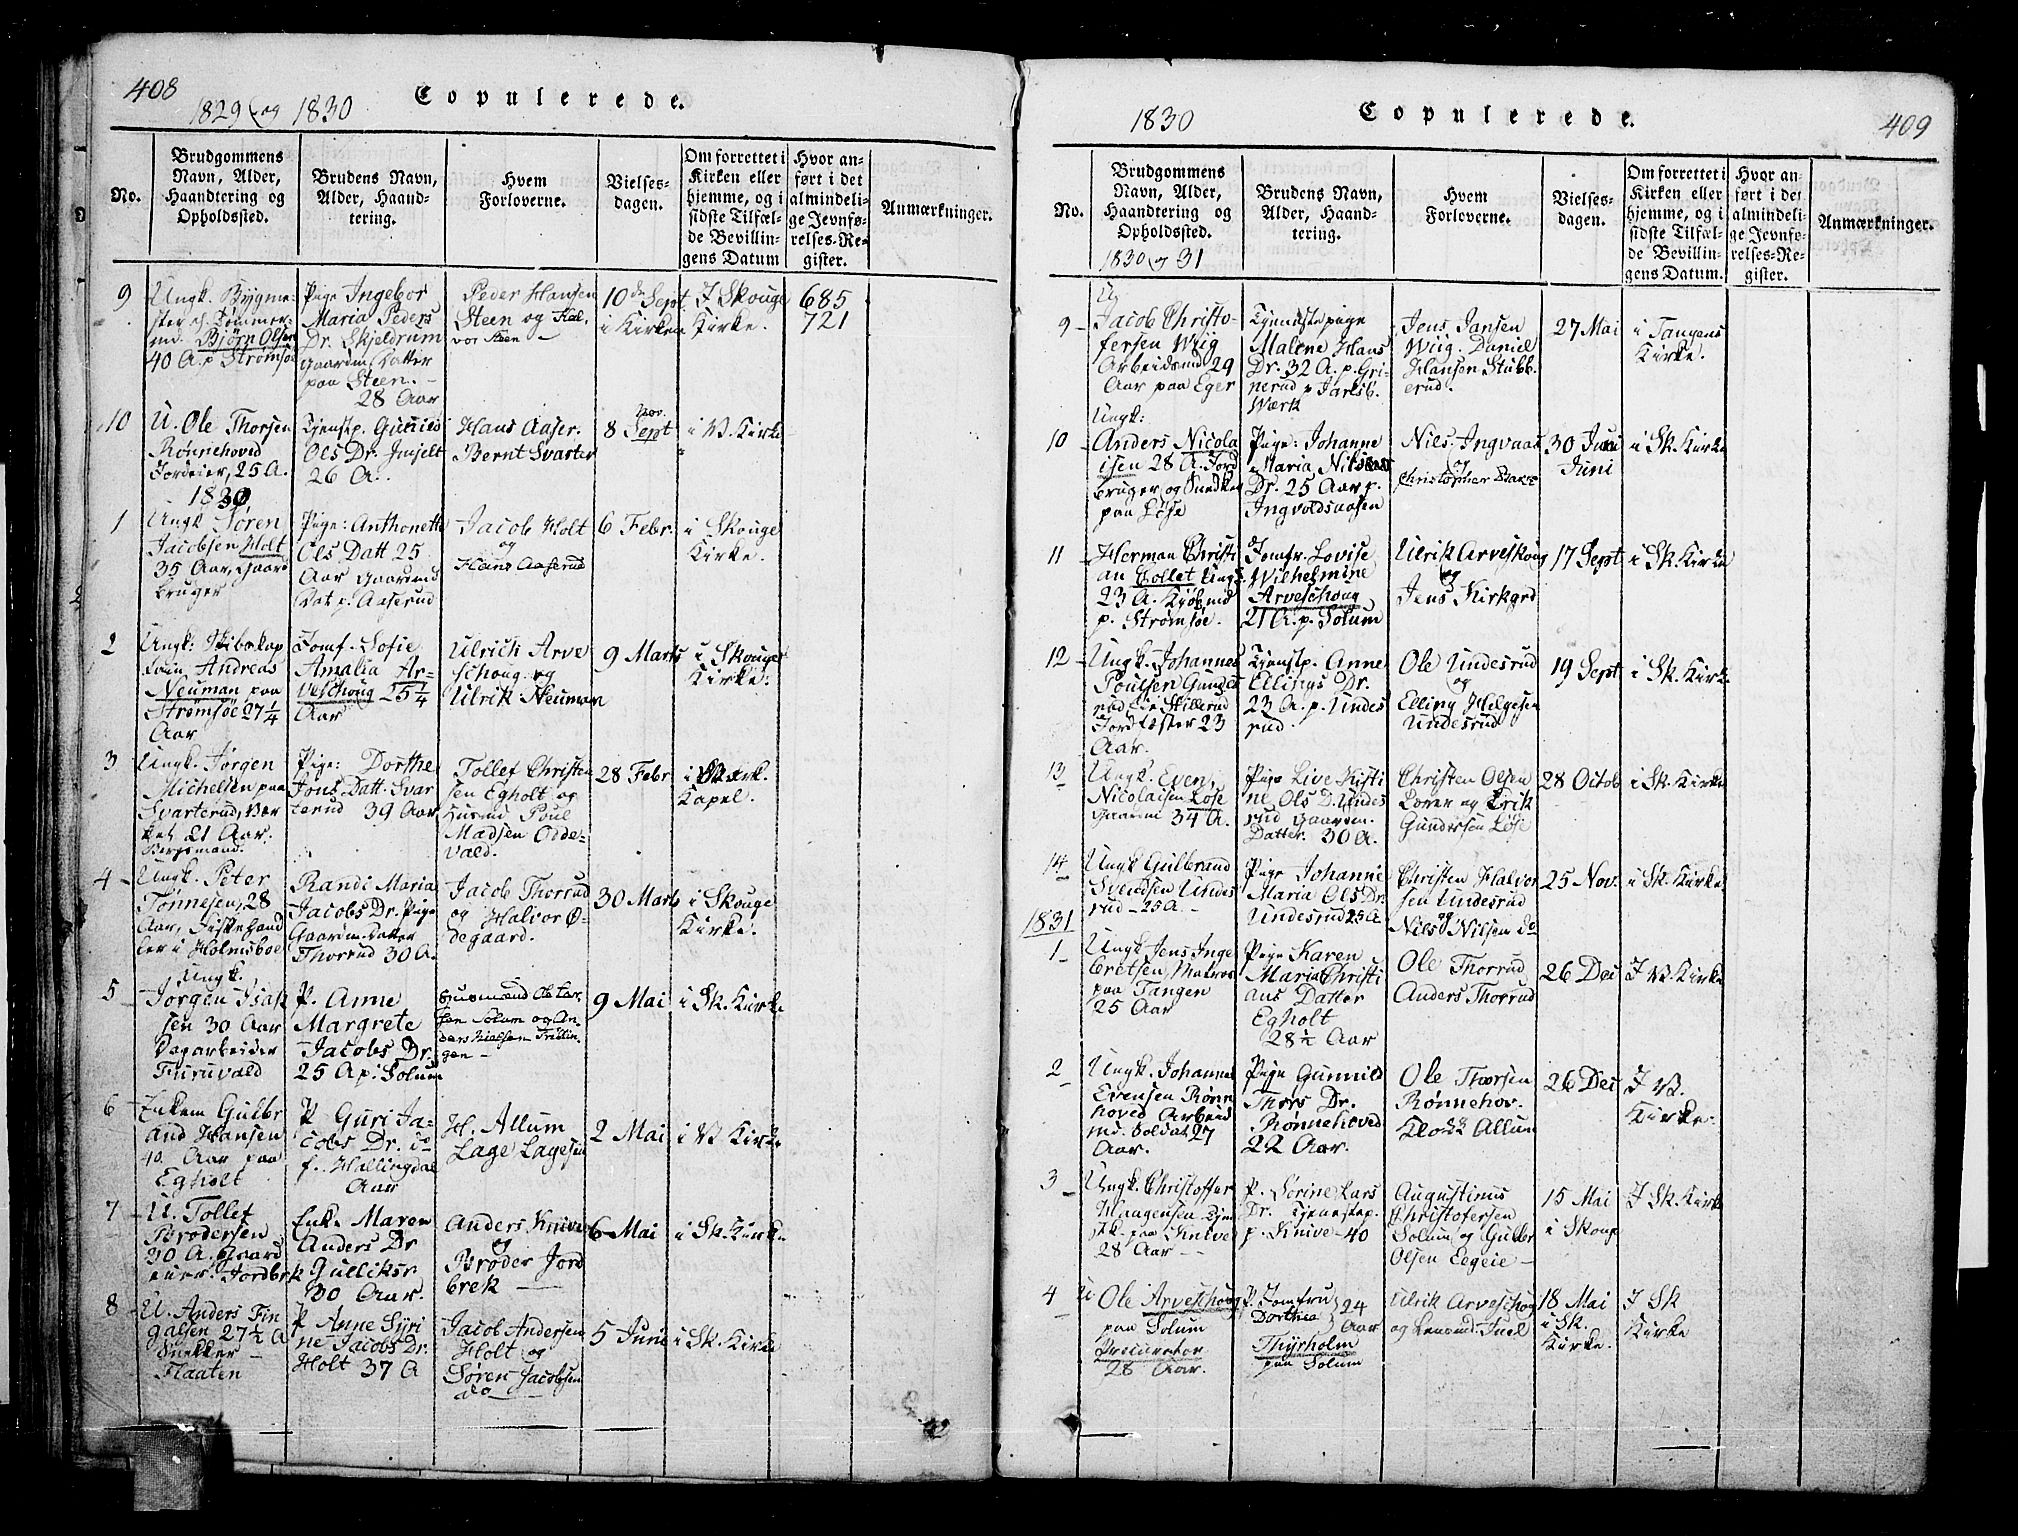 408
1829 og 1830
Copulerede.
No.
Brudgommens
Navn, Alder,
Haandtering og
Opholdssted.
Brudens Navn,
Alder, Haand-
tering.
Hvem
Forloverne.
Vielses-
dagen.
Om forrettet i
Kirken eller
hjemme, og i
sidste Tilfæl-
de Bevillin-
gens Datum
Hvor an-
ført i det
almindeli-
ge Jevnfø-
relses-Re-
gister.
Anmærkninger.
9
Ungk. Bygme-
ster el. Tømmer-
md. Bjørn Olsen
40 A. p Strømsøe
Pige Ingebor
Maria Peders
Dr. Skjeldrum
Gaardm. Datter
paa Steen.
28 Aar
Peder Hansen
Steen og Hal-
vor Steen
10de Sept
i Kirken
I Skouge
Kirke.
685
721
10
U. Ole Thorsen
Rønnehoved
Jordeier, 25 A.
Tjenstp. Gunild
Ols Dr. Imselt
26 A.
Hans Aaser.
Bernt Svarter
Nov.
8 Sept
i V. Kirke
1830
1
Ungk Søren
Jacobsen Holt
35 Aar, Gaard
bruger
Pige: Anthonette
Ols Datt 25
Aar Gaardmd
Dat p. Aaserud
Jacob Holt
og
Hans Aaserud
6 Febr.
i Skouge
Kirke.
2
Ungk: Skibskap
tain Andreas
Neuman paa
Strømsøe 27 1/4
Aar
Jomf. Sofie
Amalia Ar-
veschoug 25 1/4
Aar
Ulrich Arve
schoug og
Ulrik Neuman
9 Marts
i Skouge
Kirke.
3
Ungk. Jørgen
Michelsen paa
Svarterud, Vær
ket 21 Aar.
Bergsmand.
Pige: Dorthe
Jons Datt. Svar
terud 39 Aar
Tollef Christen
sen Egholt og
Husmd Poul
Madsen Odde-
vald.
28 Febr
i Værk.
Kapel.
4
Ungk. Peter
Tønnesen, 28
Aar, Fiskehand
ler i Holmsboe
Randi Maria
Jacobs Dr. Pige
Gaardm. Datter
Thorrud 30 A.
Jacob Thorrud
og Halvor Ø-
degaard.
30 Marts
i Skouge
Kirke.
5
Ungk.
Jørgen Isak
sen 30 Aar
Dagarbeider
Furuvald
P. Anne
Margrete
Jacobs Dr.
25 A p. Solum
Husmand Ole Lar-
sen Solum og An-
ders Nielsen
9 Mai
i Sk. Kirke
6
Enkem Gulbr
and Hansen
40 Aar paa
Egholt
P Guri Ja-
cobs Dr. do
f. Hallingdal
Aar
H. Allum
Lage Lagesen
2 Mai
i V Kirke
7
U. Tollef
Brodersen
30 A. Gaard
eier. Jordbrk
Enke Maren
Anders Dr
Gulliksr
30 Aar.
Anders Knive
og
Brøder Jord
brek
6 Mai
i Sk. Kirke
8
U. Anders Fin
galsen 27 1/2 A
Snekker
Flaaten
P Anne Syri
ne Jacobs Dr.
Holt 37 A
Jacob Andersen
Holt og
Søren Jacobsen
do
5 Juni
i Sk. Kirke
1830
Copulerede.
409
No.
Brudgommens
Navn, Alder,
Haandtering og
Opholdssted.
1830 og 31
Brudens Navn,
Alder, Haand-
tering.
Hvem
Forloverne.
Vielses-
dagen.
Om forrettet i
Kirken eller
hjemme, og i
sidste Tilfæl-
de Bevillin-
gens Datum.
Hvor an-
ført i det
almindeli-
ge Jevnfø-
relses-Re-
gister.
Anmærkninger.
9
U
Jacob Christo-
fersen Wiig
Arbeidsmd 29
Aar paa Eger
Tjenstepige
Malene Hans
Dr. 32 A. p. Gri-
nerud p Jarlsb.
Værk
Jens Jansen
Wiig. Daniel
Hansen Stubb-
erud.
27 Mai
i Tangens
Kirke.
10
Ungk:
Anders Nicola
isen 28 A. Jord
bruger og Snedker
paa Løse
Pige: Johanne
Maria Nils
Dr. 25 Aar p.
Ingvoldsaasen
Nils Ingvaal
og
Christopher
30 Juni
Juni
i Sk. Kirke
11
Herman Christi
an Collet Ungk.
23 A. Kjøbmd
p. Strømsøe.
Jomfr. Lovise
Wilhelmine
Arveschoug
21 A. p. Solum
Ulrik Arveskoug
og
Jens Kirkgrd
17 Sept
i Sk. Kirke
12
Ungk. Johannes
Poulsen Gundes
rud Eie Skillerud
Jordfæster 23
Aar.
Tjenstp. Anne
Ellings Dr.
23 A. p. Undes
rud.
Ole Undesrud
og
Elling Helgesen
Undesrud
19 Sept
i Sk. Kirke
13
Ungk. Even
Nicolaisen Løse
Gaardm 34 A.
Pige Live Kisti
ne Ols D. Undes
rud Gaardm.
Datter. 30 A.
Christen Olsen
Loren og Erik
Gundersen Løse
28 Octob
i Sk. Kirke
14
Ungk Gulbrand
Svendsen Undes
rud 25 A
Pige Johanne
Maria Ols Dr.
Undesrud 25 A
Christen Halvor
sen Undesrud
og
Nils Nilsen do
25 Nov.
i Sk. Kirke
1831
1
Ungk Jens Inge
bretsen, Matros
paa Tangen
25 Aar
Pige Karen
Maria Christi
ans Datter
Egholt
28 1/2 Aar
Ole Thorrud
Anders Thorrud
26 Dec
I V. Kirke
2
Ungk. Johannes
Evensen Rønne
hoved Arbeids
md. Soldat 27
Aar.
Pige Gunnild
Thors Dr.
Rønnehoved
22 Aar.
Ole Thorsen
Rønnehov.
Klokk Allum
26 Dec
I V.
Kirke.
3
Ungk. Christoffer
Haagensen Tjen
stk. paa Knive
28 Aar
P. Sørine Lars
Dr. Tjenestep.
p. Knive 40
Augustinus
Christofersen
Solum og Gulbr
Olsen Eegeie
15 Mai
i Skoug
I Sk. Kirke
4
U
Ole Arveschoug
paa Solum
Procurator
28 Aar.
P. Jomfru
Dorthea
24
Aar
Thyrholm
paa Solum
Ulrik Arveschoug
og Lensmd. Juel
18 Mai
i Sk.
Kirke.
I Sk
Kirke